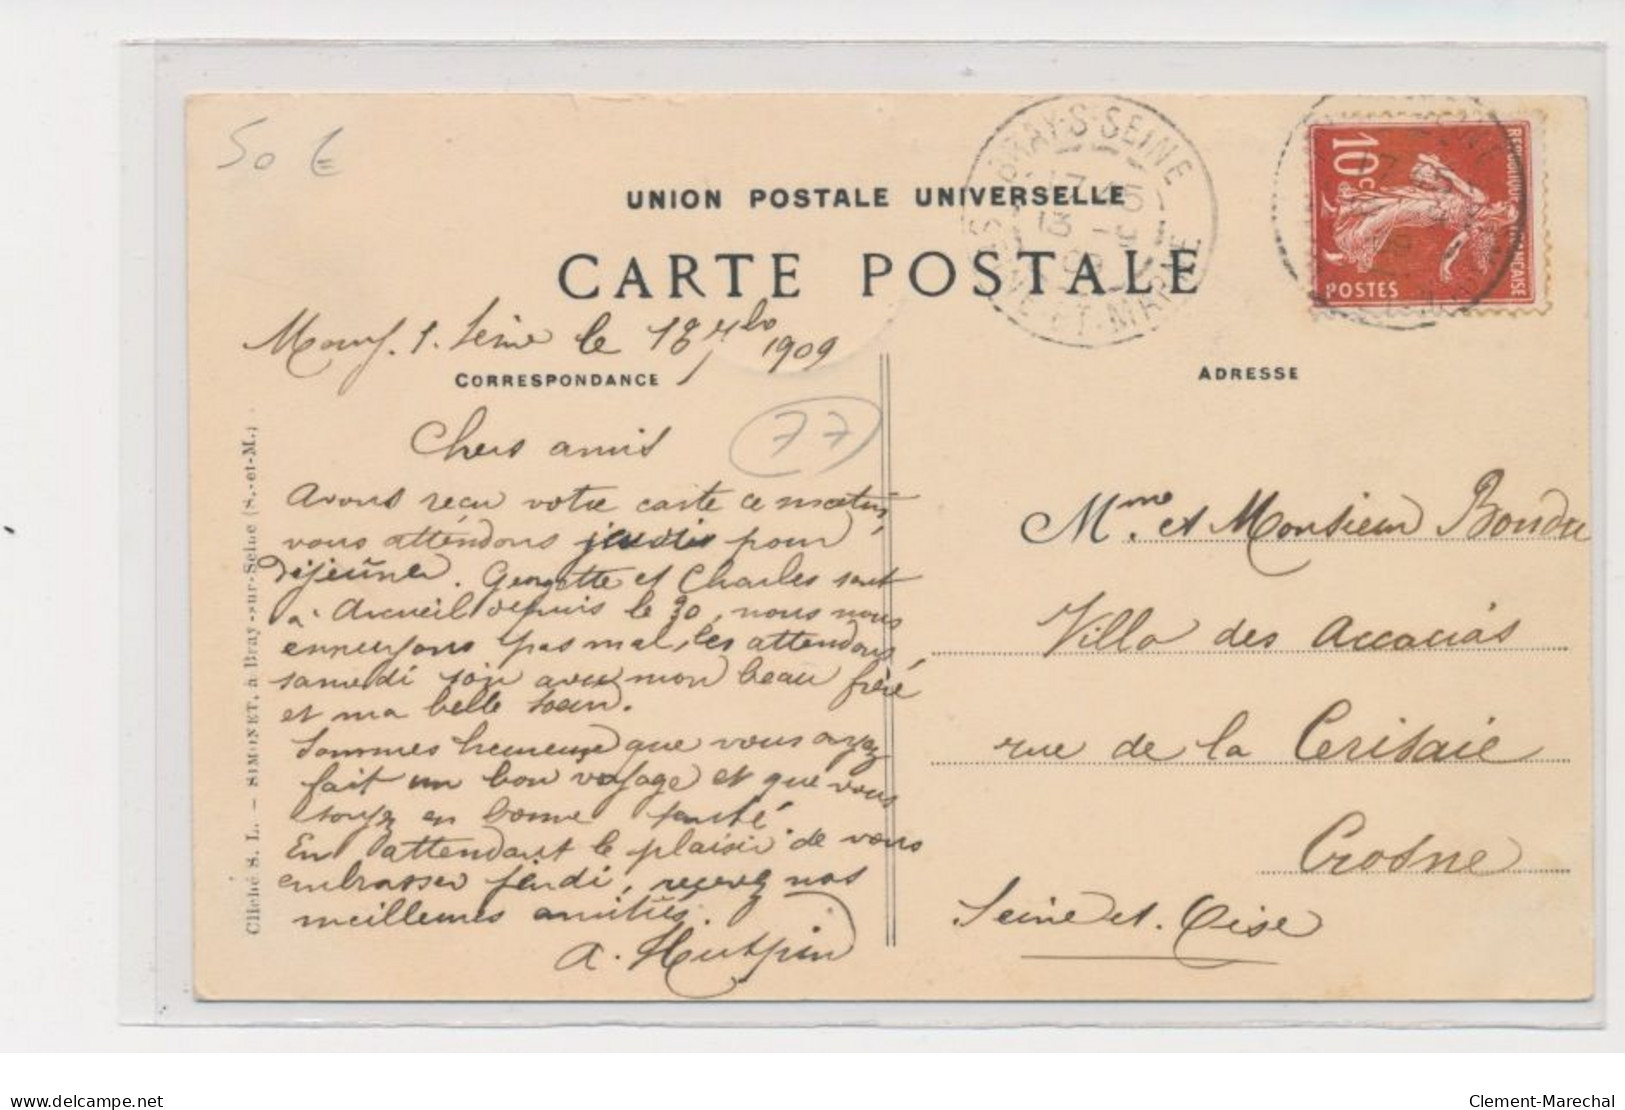 50 €
UNION POSTALE UNIVERSELLE
CARTE POSTALE
BRAY-S-SEINE
13
SEINE-ET-MARNE
REPUBLIQUE FRANÇAISE
10 c
POSTES
s. Seine le 1909
CORRESPONDANCE
ADRESSE
77
Chers amis
Avons reçu votre carte ce matin,
vous attendons jeudi pour
déjeuner. Georgette et Charles sont
à Arcueil depuis le 30, nous nous
ennuyons pas mal, les attendons
samedi soir avec mon beau frère
et ma belle soeur.
Sommes heureux que vous ayez
fait un bon voyage et que vous
soyez en bonne santé
En attendant le plaisir de vous
embrasser jeudi, recevez nos
meilleures amitiés.
A.
Mme. et Monsieur
Villa des Accacias
rue de la Cerisaie
Crosne
Seine et. Oise
Cliché S. L. — SIMONET, à Bray-sur-Seine (S.-et-M.)
delcampe.net
Clement-Marechal